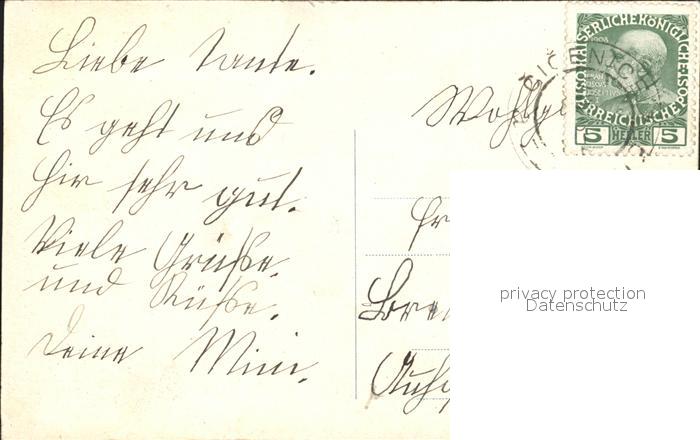 Liebe Tante.
Es geht uns
hir sehr gut.
Viele Grüsse.
und Küsse.
Deine Mini.
Wohlge
Fr
Aus
KAISERLICHE KÖNIGLICHE
ÖSTERREICHISCHE POST
1908
5 HELLER 5
privacy protection
Datenschutz